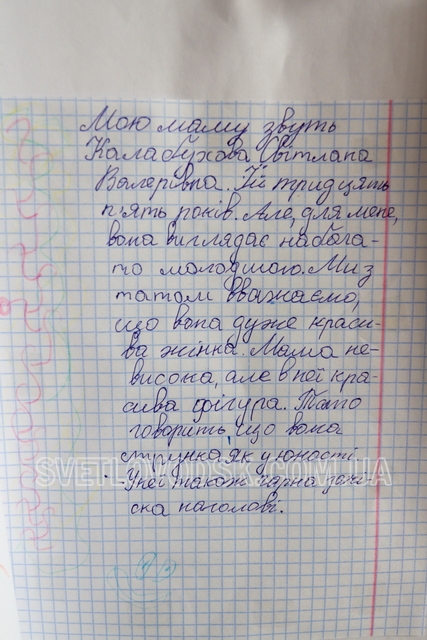 Мою маму звуть
Калабухова Світлана
Валеріївна. Їй тридцять
п'ять років. Але, для мене,
вона виглядає набага-
то молодшою. Ми з
татом вважаємо,
що вона дуже краси-
ва жінка. Мама не-
висока, але в неї кра-
сива фігура. Тато
говорить, що вона
струнка, як у юності.
SVETLOVODSK.COM.UA
У неї також гарна зачі-
ска на голові.